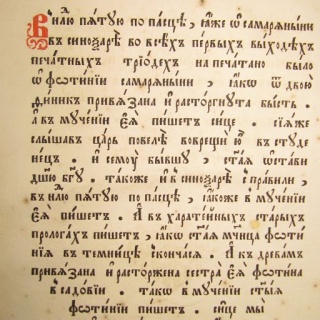 В нл҃ю пѧ́тую по па́сцѣ, є҆́же ѡ҆ самарѧны́ни
въ синоѯарѣ̀ во всѣ́хъ пе́рвыхъ вы́ходѣхъ
печа́тныхъ трїѡ́дехъ на печа́тано бы́ло
ѡ҆ фѡтинїи самарѧны́ни , ꙗ҆́кѡ ѿ двою̀
ди́никъ привѧ́зана и҆ расто́ргнута бы́сть .
А҆ въ муче́нїи є҆ѧ̀ пи́шетъ си́це . сїѧ́же
слы́шавъ ца́рь повелѣ̀ вове́рщи ю҆̀ въ студе
не́цъ . и҆ семꙋ̀ бы́вшу , ст҃а́ѧ ѡ҆ста́ви
дш҃ю бг҃у . та́коже и҆ въ синоѯарѣ̀ спра́вили ,
въ нл҃ю пѧ́тую по па́сцѣ , ꙗ҆́коже в муче́нїи
є҆ѧ̀ пи́шетъ . А҆ въ харате́йныхъ ста́рыхъ
проло́гахъ пи́шетъ , ꙗ҆́кѡ ст҃а́ѧ мч҃ица фоти
нїѧ въ темни́цѣ сконча́сѧ . А҆ к древа́мъ
привѧ́зана и҆ расто́ржена сестра̀ є҆ѧ̀ фѡти́на
в садо́вїи . та́кѡ в муче́нїи ст҃ы́ѧ
фоти́нїи пи́шетъ . си́це мы̀